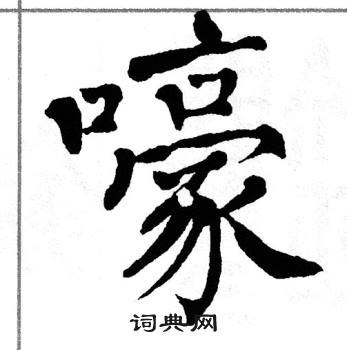 嚎
词典网